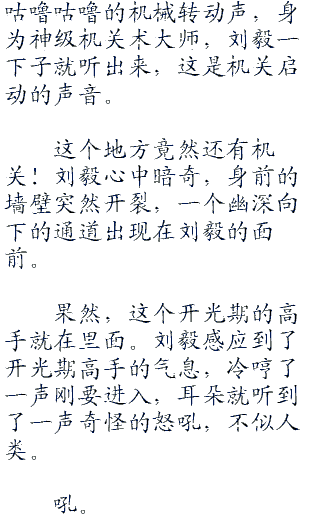 咕噜咕噜的机械转动声，身
为神级机关术大师，刘毅一
下子就听出来，这是机关启
动的声音。
这个地方竟然还有机
关！刘毅心中暗奇，身前的
墙壁突然开裂，一个幽深向
下的通道出现在刘毅的面
前。
果然，这个开光期的高
手就在里面。刘毅感应到了
开光期高手的气息，冷哼了
一声刚要进入，耳朵就听到
了一声奇怪的怒吼，不似人
类。
吼。